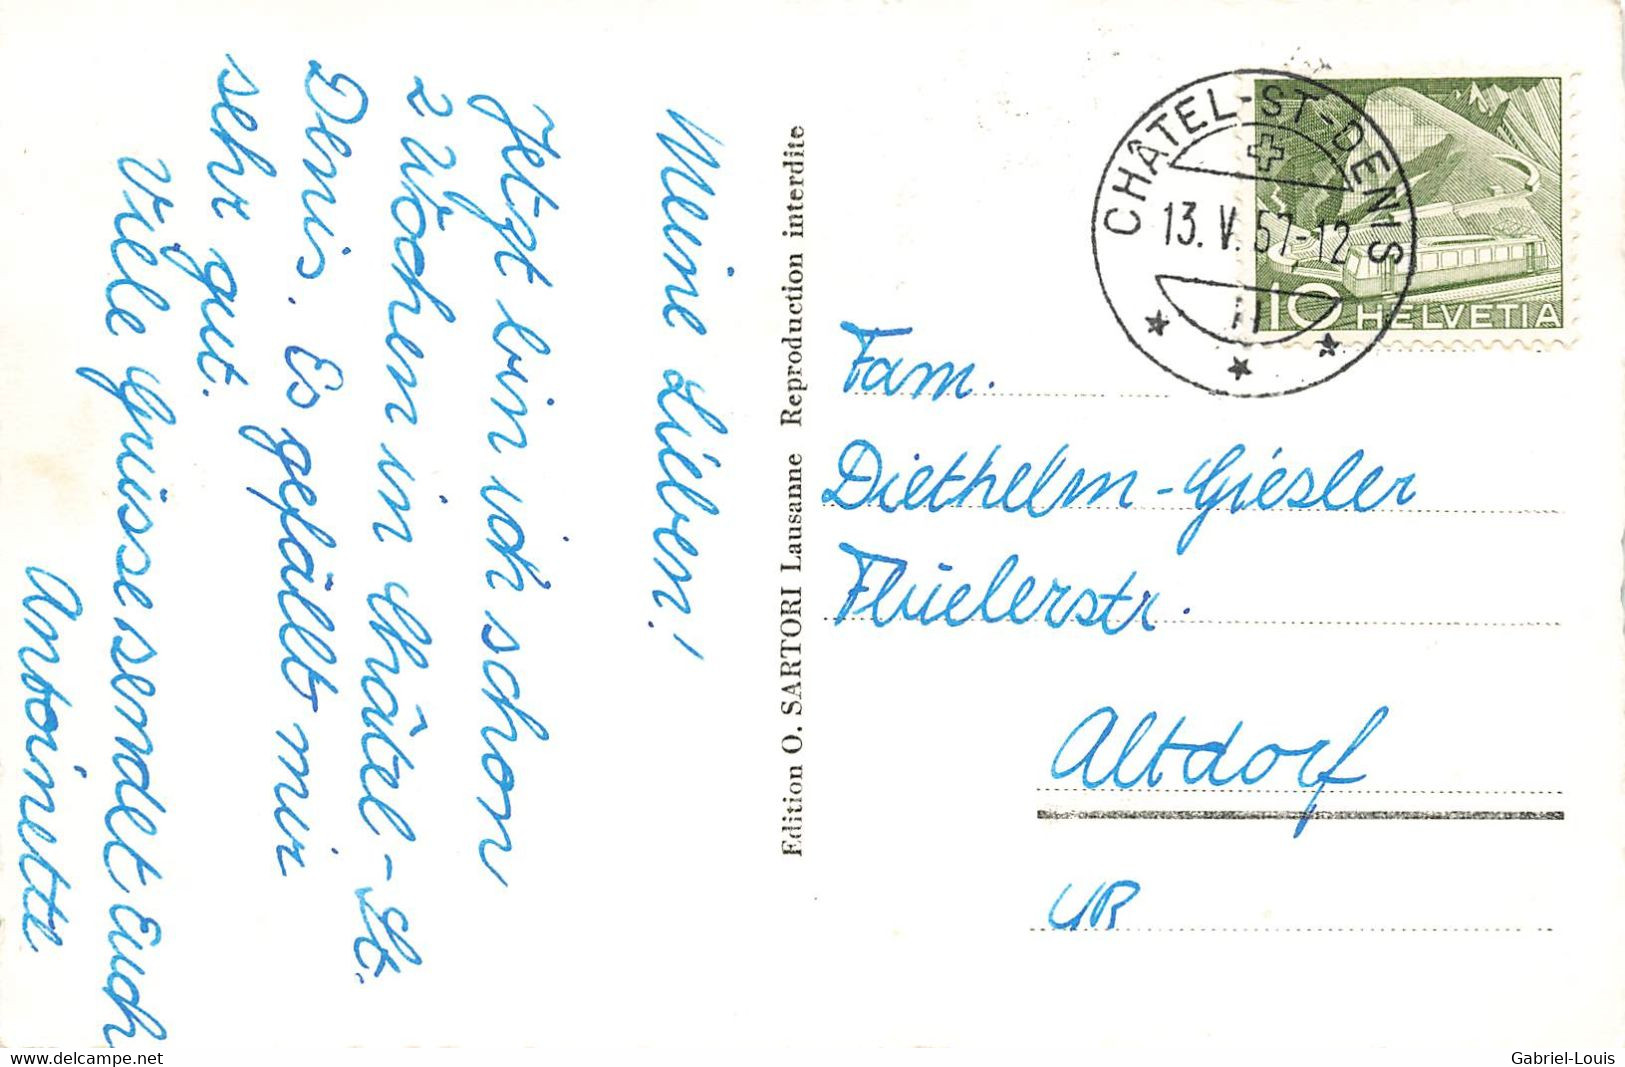 Meine Lieben!
Jetzt bin ich schon
2 Wochen in Châtel-St.
Denis. Es gefällt mir
sehr gut.
Viele Grüsse sendet Euch
Antoinette
Edition O. SARTORI Lausanne Reproduction interdite
CHÂTEL-ST-DENIS
13.V.57-12
10 HELVETIA
Fam.
Diethelm-Giesler
Flüelerstr.
Altdorf
UR
delcampe.net
Gabriel-Louis